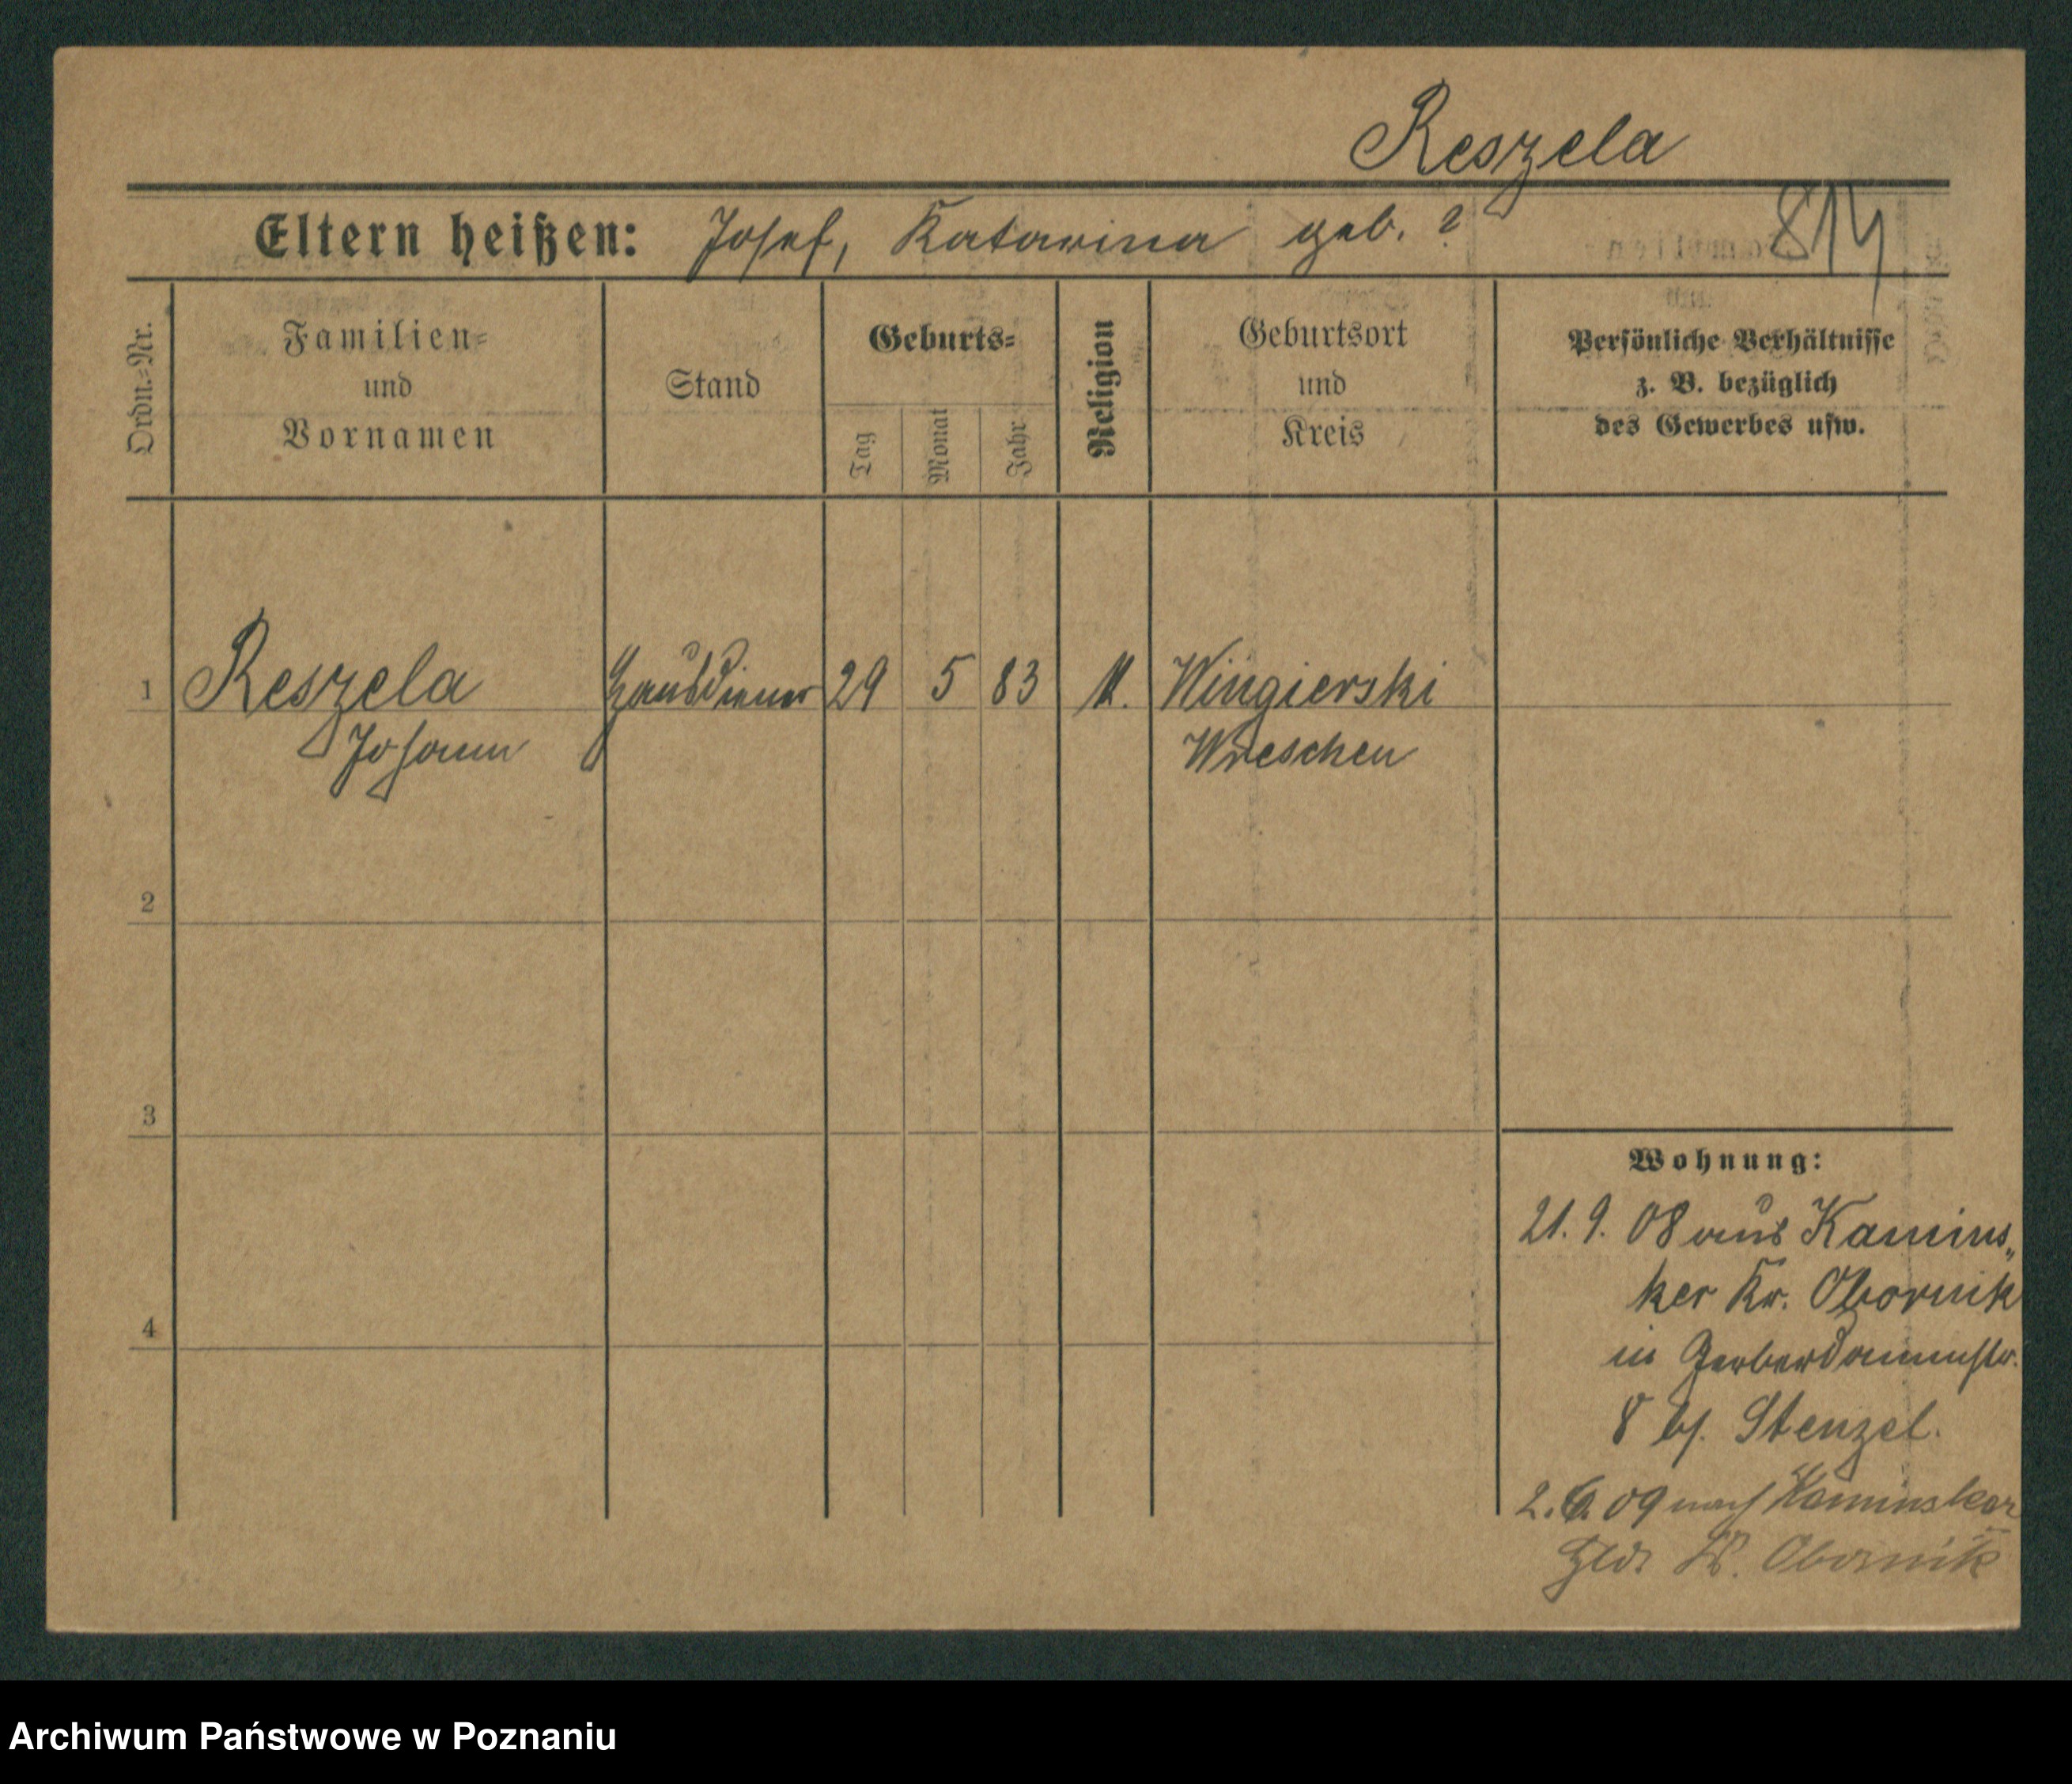 Reszela
Eltern heißen: Josef, Katarina geb. ?
814
Ordn.-Nr.
Familien-
und
Vornamen
Stand
Geburts-
Tag
Monat
Jahr
Religion
Geburtsort
und
Kreis
Persönliche Verhältnisse
z. B. bezüglich
des Gewerbes usw.
1 Reszela Hausdiener 29 5 83 K. Wingierski
Johann Wreschen
2
3
4
Wohnung:
21. 9. 08 aus Kamins„
ker Kr. Obornik
in Gerberdammstr.
8 bj. Stenzel.
2. 6. 09 nach Kaminsker
Hld. K. Obornik
Archiwum Państwowe w Poznaniu